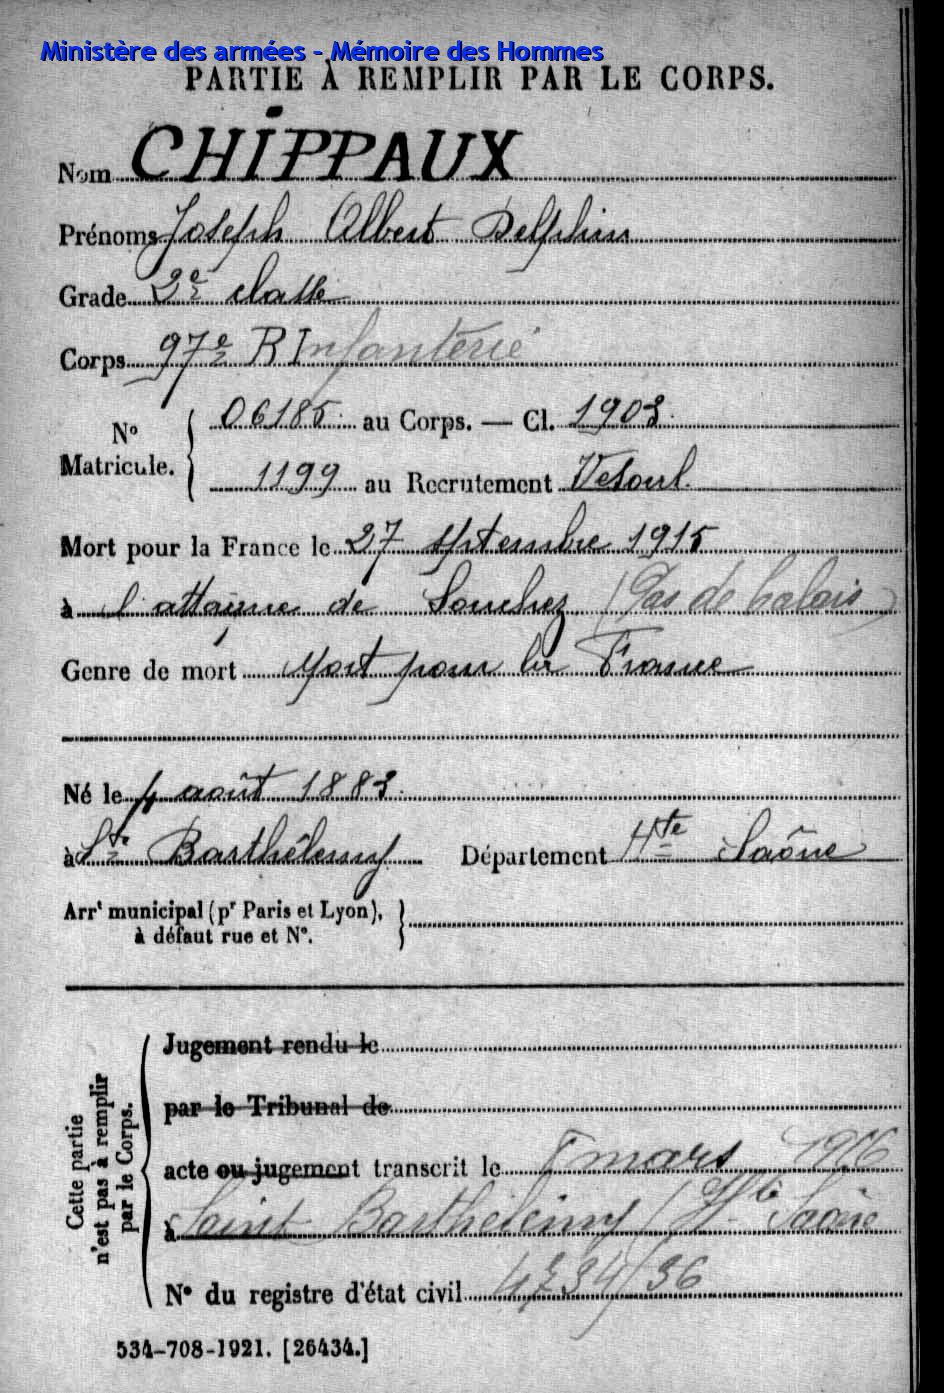 Ministère des armées - Mémoire des Hommes
PARTIE À REMPLIR PAR LE CORPS.
Nom CHIPPAUX
Prénoms Joseph Albert Delphin
Grade 2e classe
Corps 97e R Infanterie
No Matricule. { 06185 au Corps. — Cl. 1903
1199 au Recrutement Vesoul
Mort pour la France le 27 septembre 1915
à l'attaque de Souchez (Pas de Calais)
Genre de mort Mort pour la France
Né le 4 août 1883
à St Barthélemy Département Hte Saône
Arrt municipal (pr Paris et Lyon), }
à défaut rue et No.
Cette partie n'est pas à remplir par le Corps.
Jugement rendu le
par le Tribunal de
acte ou jugement transcrit le 8 mars 1916
à Saint Barthélemy (Hte Saône
No du registre d'état civil
534-708-1921. [26434.]